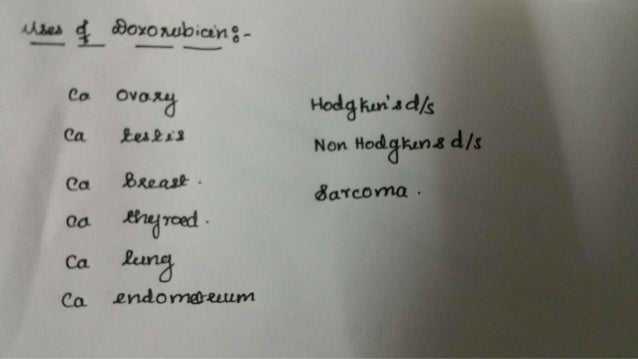 Uses of Doxorubicin:-
Ca ovary
Ca testis
Ca Breast.
Ca thyroid.
Ca lung
Ca endometrium
Hodgkin's d/s
Non Hodgkins d/s
Sarcoma.